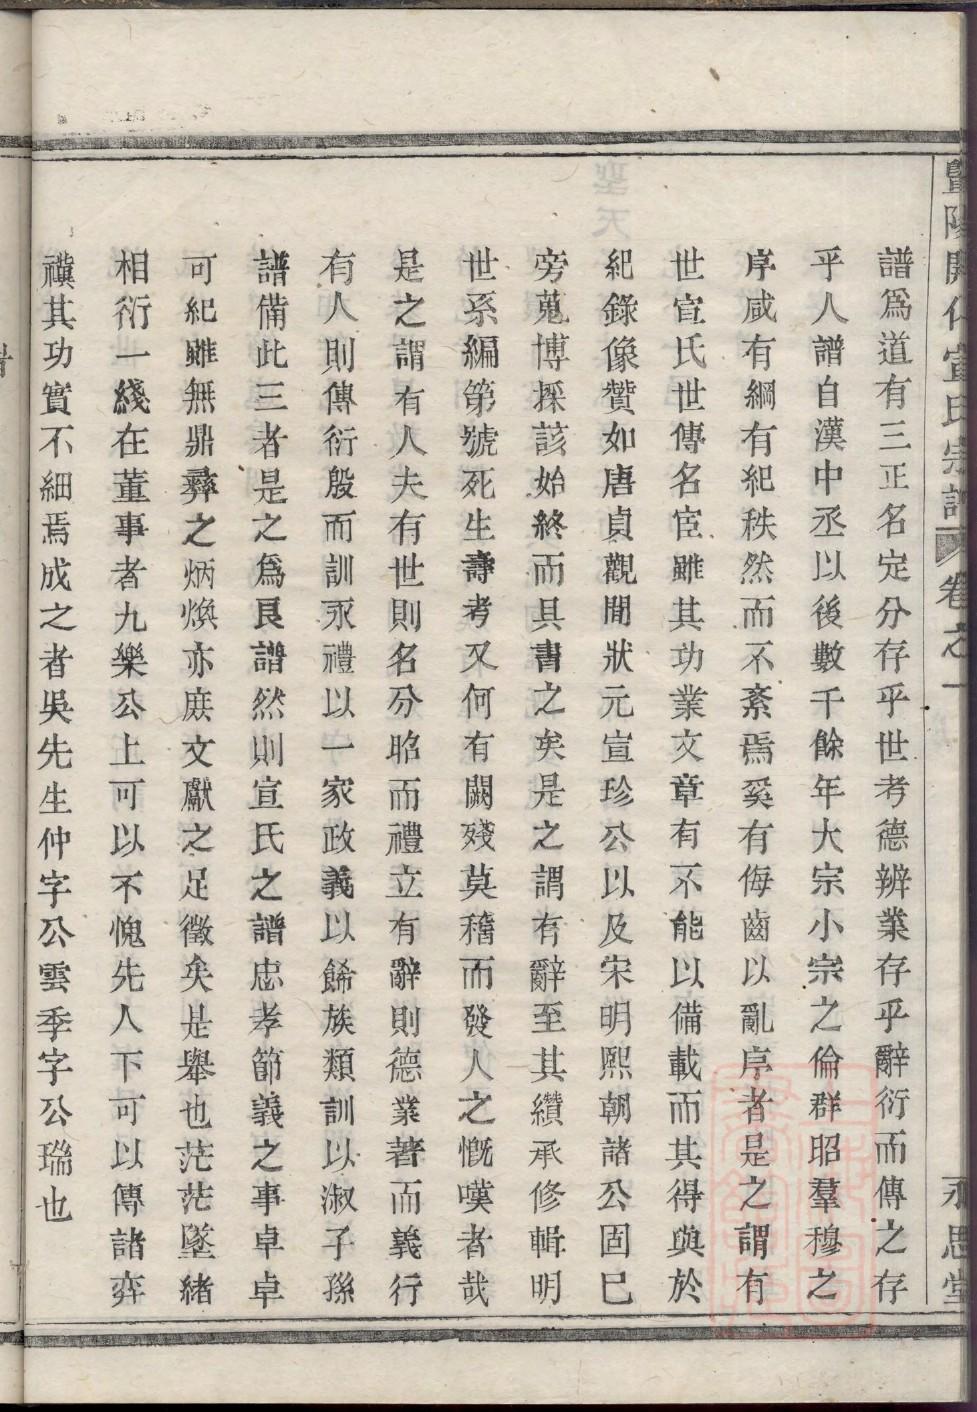 暨陽開化宣氏宗譜 卷之一 永思堂
譜爲道有三正名定分存乎世考德辨業存乎辭衍而傳之存
乎人譜自漢中丞以後數千餘年大宗小宗之倫群昭羣穆之
序咸有綱有紀秩然而不紊焉奚有侮齒以亂序者是之謂有
世宣氏世傳名宦雖其功業文章有不能以備載而其得與於
紀錄像贊如唐貞觀間狀元宣珍公以及宋明熙朝諸公固已
旁蒐博採該始終而具書之矣是之謂有辭至其纘承修輯明
世系編第號死生壽考又何有闕殘莫稽而發人之慨嘆者哉
是之謂有人夫有世則名分昭而禮立有辭則德業著而義行
有人則傳衍殷而訓永禮以一家政義以餙族類訓以淑子孫
譜備此三者是之爲良譜然則宣氏之譜忠孝節義之事卓卓
可紀雖無鼎彝之炳煥亦庻文獻之足徵矣是舉也茫茫墜緒
相衍一綫在董事者九樂公上可以不愧先人下可以傳諸弈
禩其功實不細焉成之者吳先生仲字公雲季字公瑞也